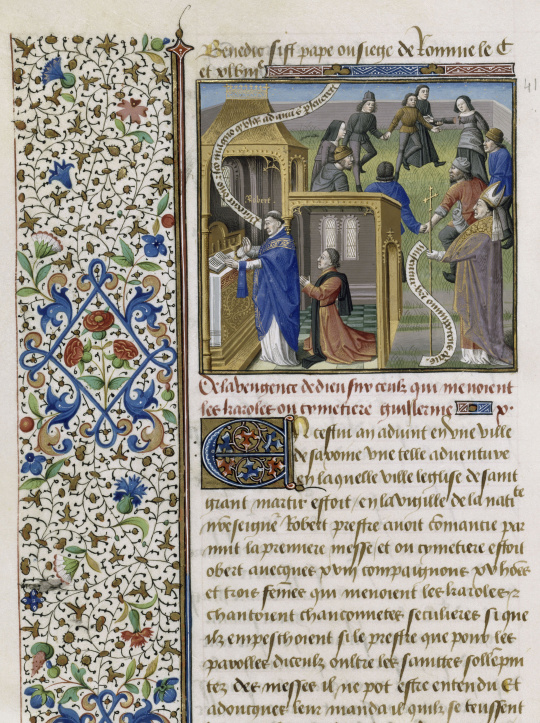 Benedic sist pape ou siege de Romme le C
et xlviijᵉ
41
Robert
De la vengence de dieu sur ceulx qui menoient
les karoles ou cymetiere guillerme x.
En cestui an advint en une ville
de saxonne une telle adventure
en laquelle ville leglise de saint
grant martir estoit / en la vigille de la nati
nreseigñ Robert prestre avoit comancie par
nuit la premiere messe / et ou cymetiere estoit
obert avecques xviij compaignons xv hões
et trois femēs qui menoient les karoles et
chantoient chanconnetes seculieres si que
ilz empeschoient si le prestre que pour les
parolles diceulx oultre les saintes sollēpni
tez des messes il ne pot estre entendu Et
adoncques leur manda il quilz se teussent